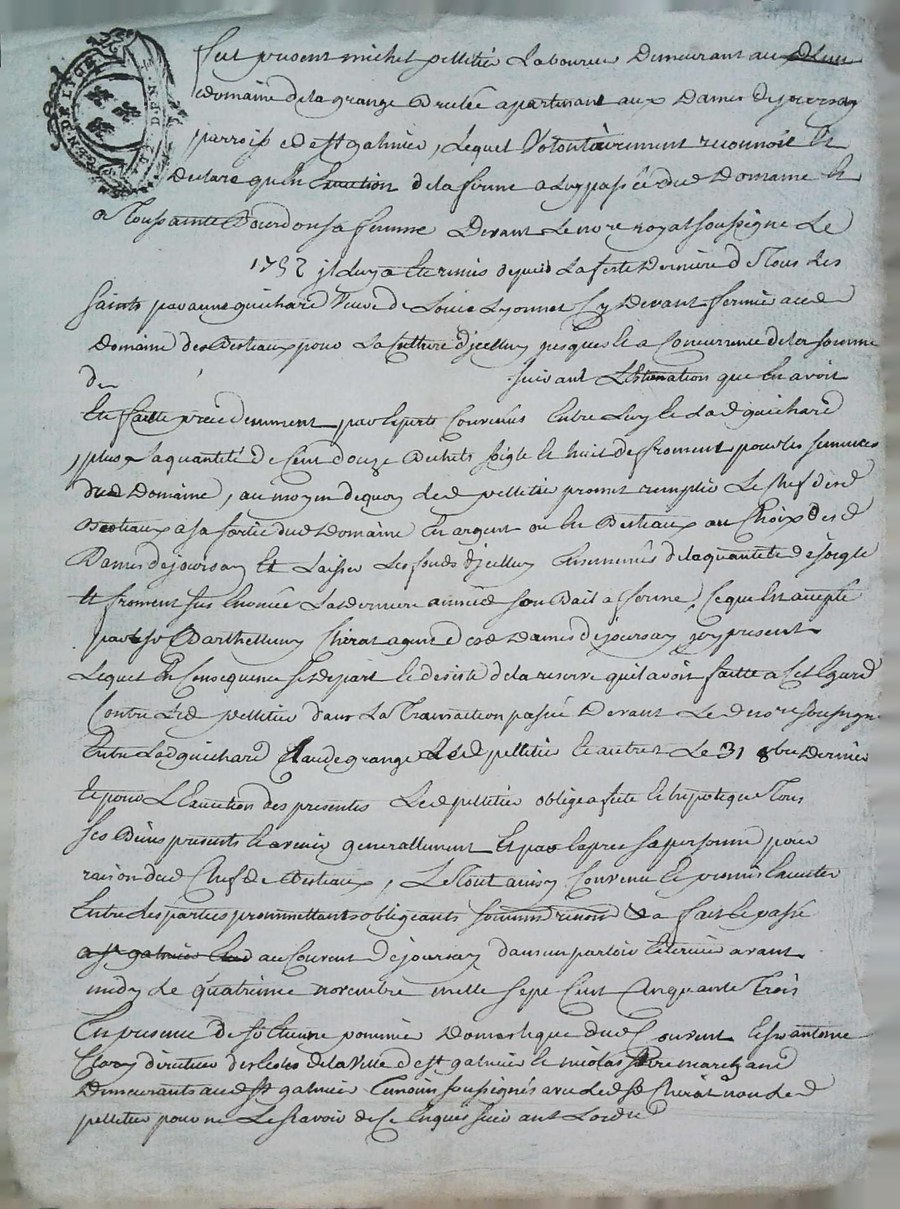 GEN. DE LYON
fut present michel pelletier Laboureur Demeurant au
domaine de la grange apartenant aux Dames de joursay
parroisse de st galmier, Lequel Volontairement reconnoit Et
Declare qu'En Execution de la ferme a Luy passée dud Domaine Et
a Toussainte Dourdon sa femme Devant Le no.re royal soussigné Le
1752 jl Luy a Eté remis depuis La feste Derniere de Tous les
saints par anne guichard Veuve de Louis Lyonnet Cy Devant fermier aud
Domaine des Bestiaux pour La Culture d'jcelluy jusques a Concurrence de la somme
De suivant L'Estimation que En avoit
Eté faitte précedemment par Experts Convenus Entre Luy Et Lad guichard
plus La quantité de Cent douze Bichets seigle Et huit de froment pour les semences
dud Domaine, au moyen de quoy led pelletier promet remplir Le Chef desd
Bestiaux a sa sortie dud Domaine En argent ou En Bestiaux au Choix desd
Dames de joursay Et Laisser Les fonds d'jcelluy Ensemencés de la quantité de soigle
Et froment sus Enoncée La derniere année de son Bail a ferme, Ce qui Est accepté
par sr Barthellemy Chirat agent desd Dames de joursay jcy present
Lequel En Consequence se depart Et desiste de la reserve qu'il avoit faitte a Cet Egard
Contre Led pelletier dans La Transaction passée Devant Led no.re soussigné
Entre Lad guichard Claude grange Led pelletier Et autres Le 31 8bre Dernier
Et pour L'Execution des presentes Led pelletier oblige affecte Et hipoteque Tous
ses Biens presents Et avenir generallement Et par Exprès sa personne pour
raison dud Chef de Bestiaux, Le Tout ainsy Convenu Et promis Executer
Entre Les parties promettants obligeants soumis renoncé & a fait Et passé
a st galmier au Couvent de joursay dans un parloir Exterieur avant
midy Le quatrieme novembre mille sept Cent Cinquante Trois
En presence de sr Etienne pommier Domestique dud Couvent Et sr antoine
Clavy directeur des Ecoles de la Ville de st galmier Et nicolas marchand
Demeurants aud st galmier Temoins soussignés avec Led sr Chirat non Led
pelletier pour ne Le sçavoir de Ce Enquis suivant L'ordre